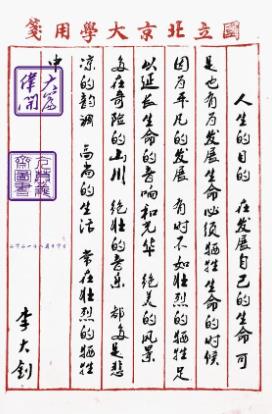 國立北京大學用箋
人生的目的 在發展自己的生命 可
是也有为發展生命必须牺牲生命的时候
因为平凡的發展 有时不如壮烈的牺牲足
以延长生命的音响和光华 绝美的风景
多在奇险的山川 绝壮的音乐 都多是悲
凉的韵调 高尚的生活 常在壮烈的牺牲
中
李大钊